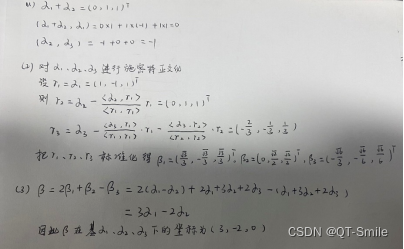 (1) α₁+α₂=(0,1,1)ᵀ
(α₁+α₂,α₁)=0×1+1×(-1)+1×1=0
(α₂,α₃)=-1+0+0=-1
(2) 对α₁、α₂、α₃进行施密特正交的
设r₁=α₁=(1,-1,1)ᵀ
则 r₂=α₂-<α₂,r₁>/<r₁,r₁> r₁=(0,1,1)ᵀ
r₃=α₃-<α₃,r₁>/<r₁,r₁>·r₁-<α₃,r₂>/<r₂,r₂>·r₂=(-2/3,-1/3,1/3)
把r₁、r₂、r₃标准化得β₁=(√3/3,-√3/3,√3/3)ᵀ,β₂=(0,√2/2,√2/2)ᵀ,β₃=(-√6/3,-√6/6,√6/6)ᵀ
(3) β=2β₁+β₂-β₃=2(α₁-α₂)+2α₁+3α₂+2α₃-(α₁+3α₂+2α₃)
=3α₁-2α₂
因此β在基α₁、α₂、α₃下的坐标为(3,-2,0)
CSDN @QT-Smile